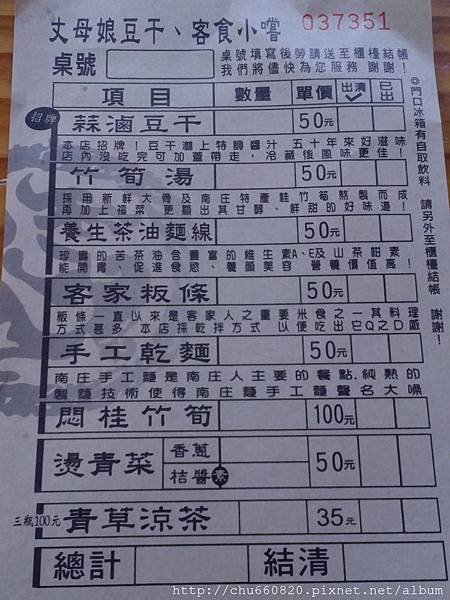 丈母娘豆干、客食小嚐 037351
桌號
桌號填寫後勞請送至櫃檯結帳
我們將儘快為您服務 謝謝!
項目 數量 單價 出清 已出
招牌 蒜滷豆干 50元
本店招牌!豆干淋上特調醬汁 五十年來好滋味
店內沒吃完可加薑帶走,冷藏後風味更佳!
竹筍湯 50元
採用新鮮大骨及南庄特產桂竹筍熬製而成
再加上福菜 更顯出其甘醇、鮮甜的好味道!
養生茶油麵線 50元
珍貴的苦茶油含豐富的維生素A、E及山茶柑素
能開胃、促進食慾、養顏美容 營養價值高!
客家粄條 50元
粄條一直以來是客家人之重要米食之一其料理
方式甚多 本店採乾拌方式 以便吃出它Q之口感
手工乾麵 50元
南庄手工麵是南庄人主要的餐點.純熟的
製麵技術使得南庄手工麵聲名大噪
悶桂竹筍 100元
燙青菜 香蔥 50元
桔醬 素
三瓶100元 青草涼茶 35元
總計 結清
◎門口冰箱有自取飲料 請另外至櫃檯結帳 謝謝!
http://chu660820.pixnet.net/album